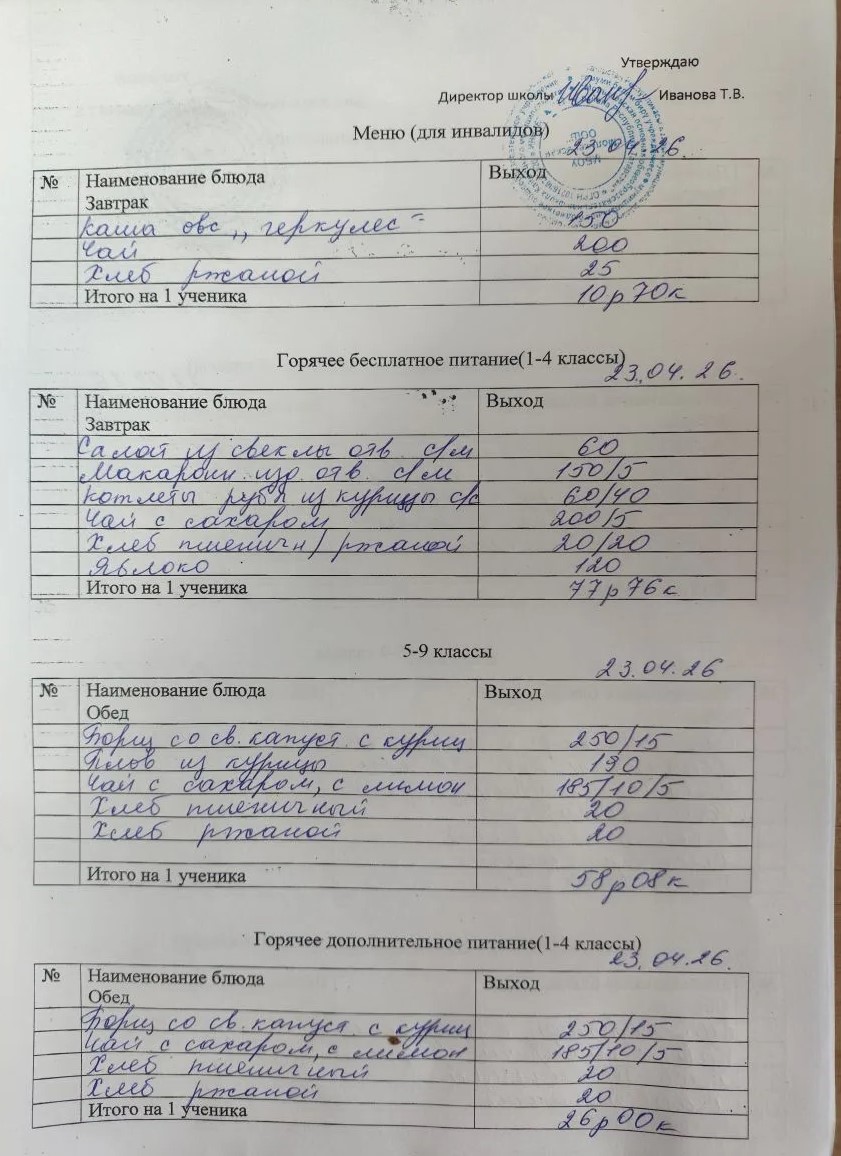 Утверждаю
Директор школы Иванова Т.В.
Меню (для инвалидов)
23.04.26.
№ Наименование блюда Выход
Завтрак
каша овс „геркулес" 150
Чай 200
Хлеб ржаной 25
Итого на 1 ученика 10р70к
Горячее бесплатное питание(1-4 классы)
23.04.26.
№ Наименование блюда Выход
Завтрак
Салат из свеклы отв с/м 60
Макарони изд отв. с/м 150/5
котлеты рубл из курицы с/с 60/40
Чай с сахаром 200/5
Хлеб пшеничн/ржаной 20/20
Яблоко 120
Итого на 1 ученика 77р76к
5-9 классы
23.04.26
№ Наименование блюда Выход
Обед
Борщ со св. капуст с куриц 250/15
Плов из курицы 190
Чай с сахаром, с лимон 185/10/5
Хлеб пшеничный 20
Хлеб ржаной 20
Итого на 1 ученика 58р08к
Горячее дополнительное питание(1-4 классы)
23.04.26.
№ Наименование блюда Выход
Обед
Борщ со св. капуст с куриц 250/15
Чай с сахаром, с лимон 185/10/5
Хлеб пшеничный 20
Хлеб ржаной 20
Итого на 1 ученика 26р00к